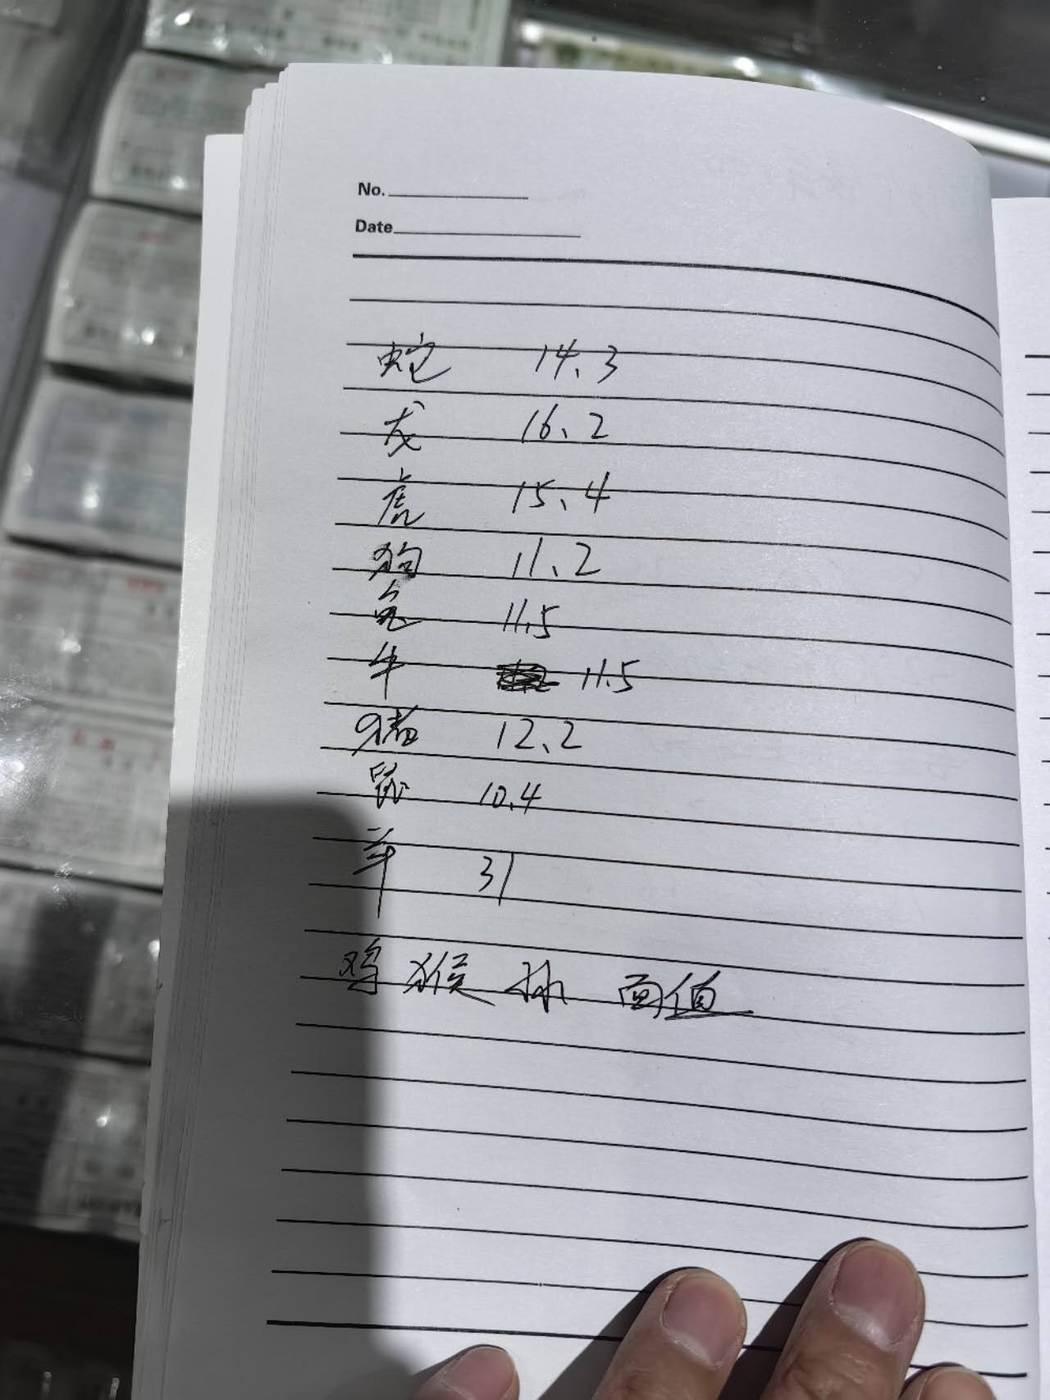 No.
Date
蛇 14.3
龙 16.2
虎 15.4
狗 11.2
兔 11.5
牛 11.5
猪 12.2
鼠 10.4
羊 31
鸡 猴 面值